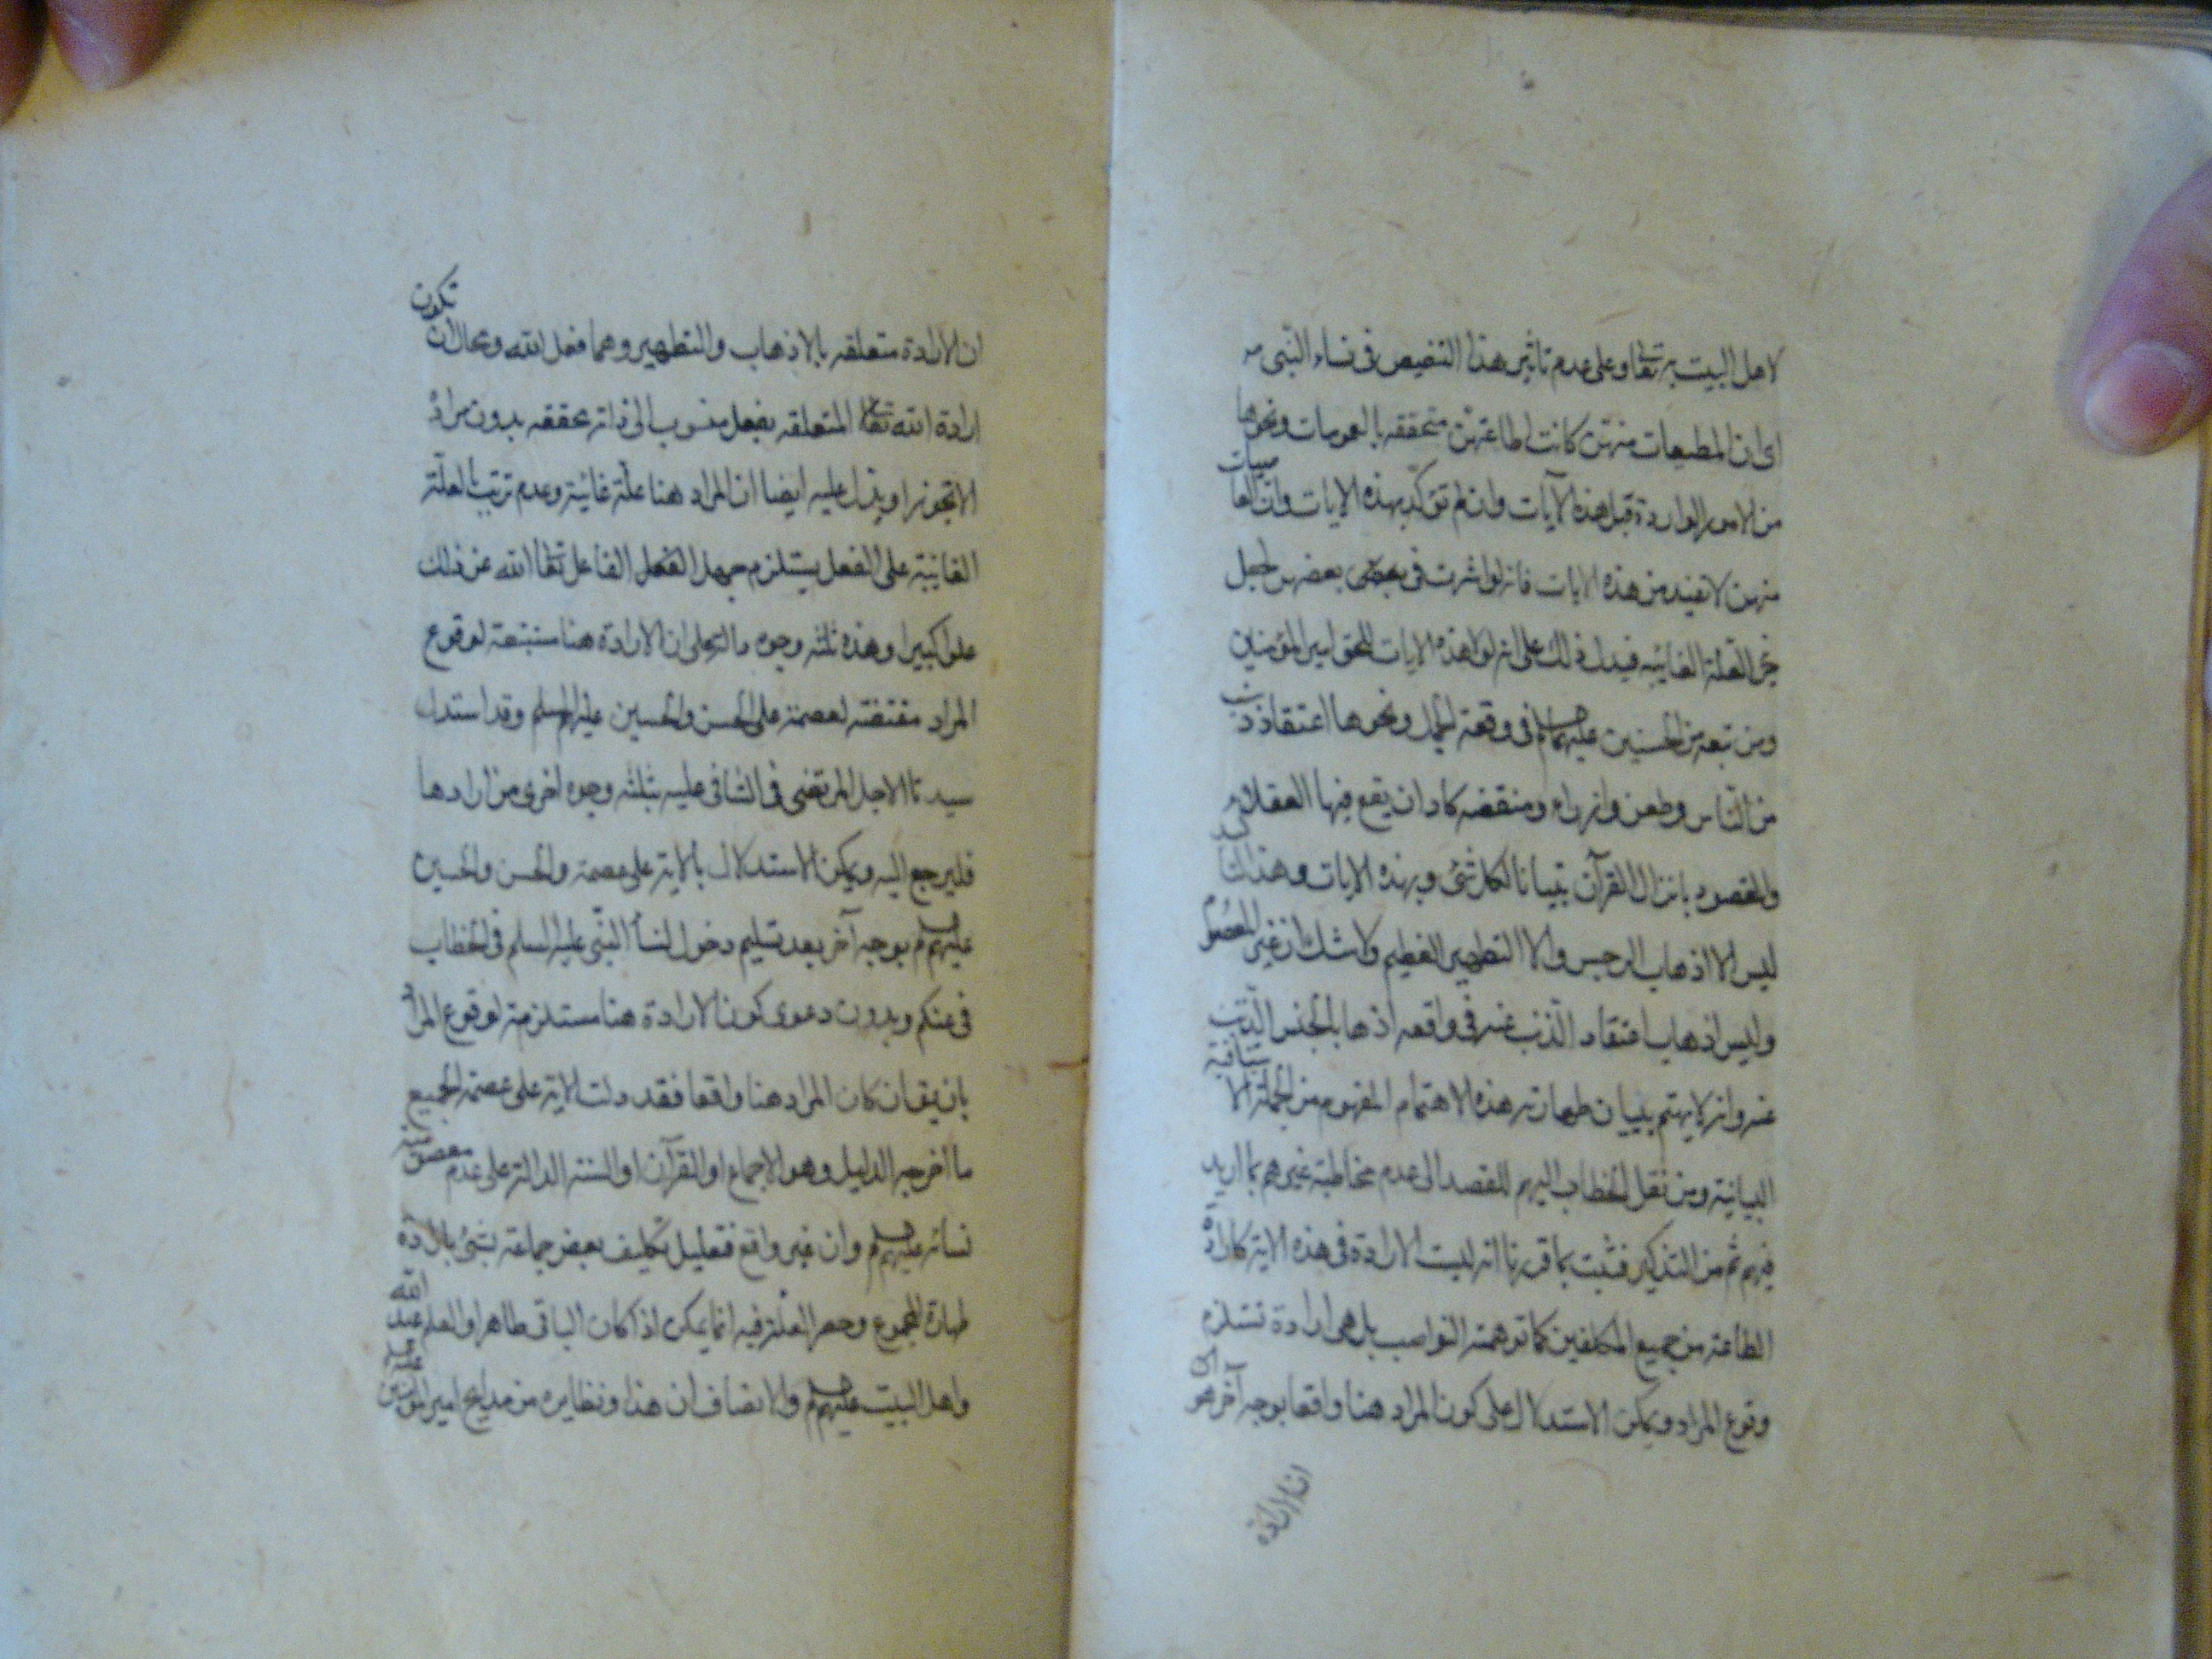 لاهل البيت به تعالى وعلى عدم تاثير هذا التنصيص في نساء النبي
اى ان المطيعات منهن كانت اطاعتهن متحققه بالعمومات ونحوها
من الامور الواردة قبل هذه الآيات وان لم تؤكد بهذه الايات وان العاصيات
منهن لا تفيدهن هذه الايات فانه لو اثرت في بعض بعضهن لجعل
جزء العلة الغائيه فيدل ذلك على انه لولا هذه الايات للحق امير المؤمنين
ومن تبعه من الحسنين عليهما السلم في وقعة الجمل ونحوها اعتقاد ذنب
من الناس وطعن وازراء ومنقصه كاد ان يقع فيها العقلاء
والمقصود بانزال القرآن تبيانا لكل شئ وبهذه الايات وهذا التاكيد
ليس الا اذهاب الرجس والا التطهير العظيم ولا شك ان غير المعصوم
وليس اذهاب اعتقاد الذنب عنه في واقعه اذهابا لجنس الذنب
عنه وانه لا يهتم ببيان طهارته هذه الاهتمام المفهوم من الجملة الاستينافية
البيانية ومن نقل الخطاب اليهم للقصد الى عدم مخاطبة غيرهم بما اريد
فيهم ثم من التذكير فثبت بما قررنا انه ليست الارادة في هذه الاية كارادة
الطاعة من جميع المكلفين كما توهمته النواصب بل هي ارادة تستلزم
وقوع المراد ويمكن الاستدلال على كون المراد هنا واقعا بوجه آخر هو ان
ان الارادة
ان الارادة متعلقه بالاذهاب والتطهير وهما فعل الله ومحال ان تكون
ارادة الله تعالى المتعلقه بفعل منسوب الى ذاته محققه بدون مراد
الا تجوزا ويدل عليه ايضا ان المراد هنا علة غائية وعدم ترتب العلة
الغائية على الفعل يستلزم جهل الفاعل تعالى الله عن ذلك
علوا كبيرا وهذه ثلثه وجوه دالة على ان الارادة هنا مستتبعة لوقوع
المراد مقتضته لعصمة على والحسن والحسين عليهم السلم وقد استدل
سيدنا الاجل المرتضى في الشافى عليه بثلثه وجوه اخرى من ارادها
فليرجع اليه ويمكن الاستدلال بالاية على عصمة والحسن والحسين
عليهم السلم بوجه آخر بعد تسليم دخول نساء النبي عليه السلم في الخطاب
في عنكم وبدون دعوى كون الارادة هنا مستلزمة لوقوع المراد
بان يقال ان كان المراد هنا واقعا فقد دلت الاية على عصمة الجميع
ما اخرجه الدليل وهو الاجماع او القرآن او السنة الدالة على عدم معصومية
نسائه عليهم السلم وان غير واقع فتعليل تكليف بعض جماعة بشئ بارادة
طهارة المجموع وحصر العلة فيه انما يمكن اذا كان الباقى طاهرا والعلم عند الله
واهل البيت عليهم السلم والانصاف ان هذا ونظايره من مدايح امير المؤمنين